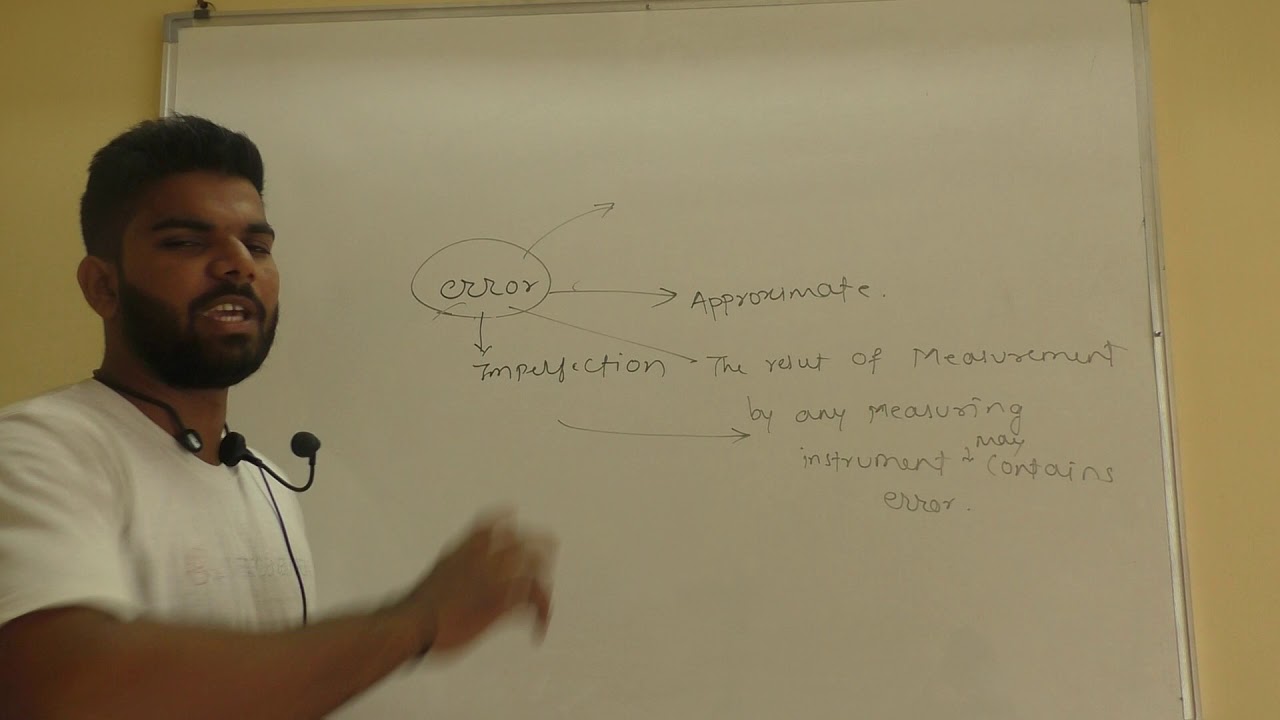 error
Approximate.
Imperfection
The resut of Measurement
by any Measuring
may
instrument & contains
error.